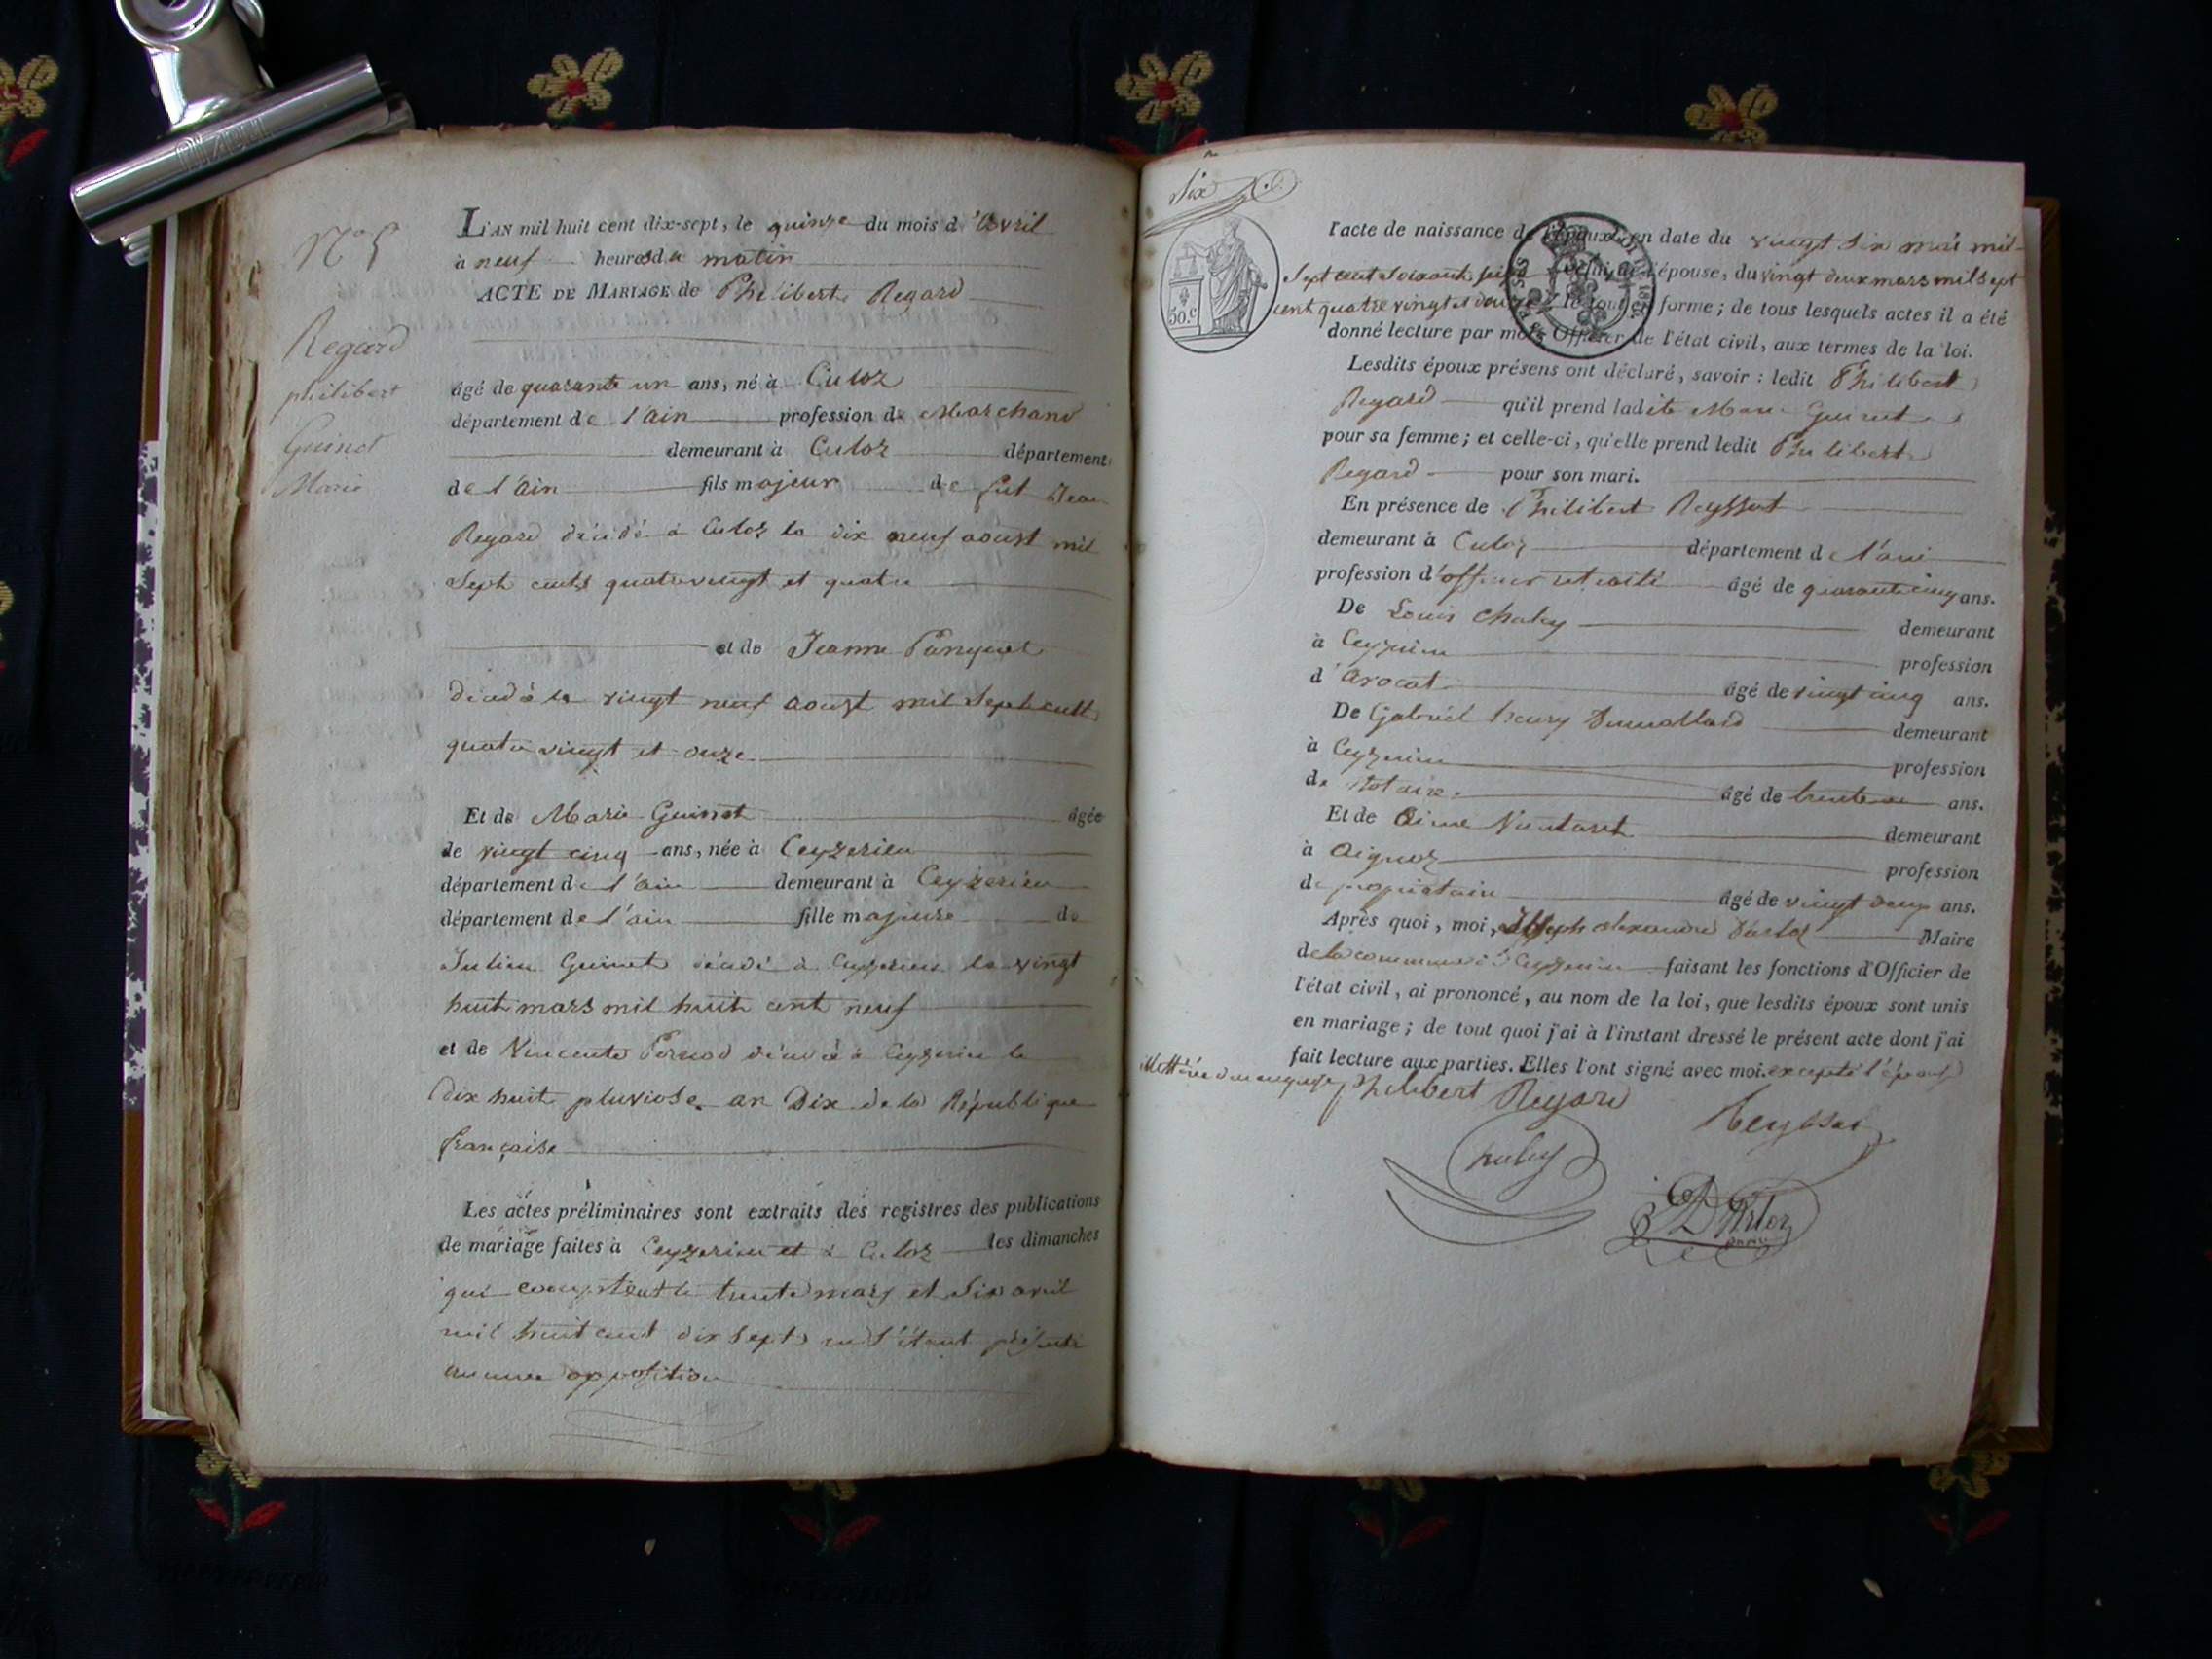 N° 5
Regard
philibert
Guinet
Marie
L'AN mil huit cent dix-sept, le quinze du mois d'Avril
à neuf heures du matin
ACTE DE MARIAGE de Philibert Regard
âgé de quarante un ans, né à Culoz
département de l'ain profession de Marchand
demeurant à Culoz département
de l'ain fils majeur de fut Jean
Regard décédé à Culoz le dix neuf aoust mil
Sept cents quatre vingt et quatre
et de Jeanne Panquet
décédée le vingt neuf aoust mil Sept cent
quatre vingt et onze
Et de Marie Guinet âgée
de vingt cinq ans, née à Ceyzerieu
département de l'ain demeurant à Ceyzerieu
département de l'ain fille majeure de
Julien Guinet décédé à Ceyzerieu le vingt
huit mars mil huit cent neuf
et de Vincente Pernod décédée à Ceyzerieu le
dix huit pluviose an Dix de la République
française
Les actes préliminaires sont extraits des registres des publications
de mariage faites à Ceyzerieu et à Culoz les dimanches
qui comptent le trente mars et Six avril
mil huit cent dix Sept ne S'étant présenté
aucune opposition
Six
50.c
l'acte de naissance de l'époux, en date du vingt Six mai mil
Sept cent Soixante Seize celui de l'épouse, du vingt deux mars mil Sept
cent quatre vingt et douze le tout en forme; de tous lesquels actes il a été
donné lecture par moi Officier de l'état civil, aux termes de la loi.
Lesdits époux présens ont déclaré, savoir: ledit Philibert
Regard qu'il prend ladite Marie Guinet
pour sa femme; et celle-ci, qu'elle prend ledit Philibert
Regard pour son mari.
En présence de Philibert Reyssat
demeurant à Culoz département de l'ain
profession d'officier retraité âgé de quarante cinq ans.
De Louis Chaley demeurant
à Ceyzerieu profession
d'Avocat âgé de vingt cinq ans.
De Gabriel henry Dumollard demeurant
à Ceyzerieu profession
de Notaire âgé de trente ans.
Et de Aimé demeurant
à Aignoz profession
de propriétaire âgé de vingt deux ans.
Après quoi, moi, Joseph Alexandre D'arloz Maire
de la commune de Ceyzerieu faisant les fonctions d'Officier de
l'état civil, ai prononcé, au nom de la loi, que lesdits époux sont unis
en mariage; de tout quoi j'ai à l'instant dressé le présent acte dont j'ai
fait lecture aux parties. Elles l'ont signé avec moi excepté l'épouse
philibert Regard
Reyssat
Chaley
D'Arloz